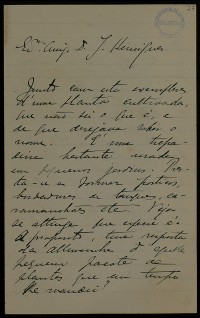 Exmo. Amigo D. J. Henriques
Junto com este exemplar
d'uma planta cultivada,
que não sei o que é, e
de que desejava saber o
nome. É uma trepa-
deira bastante usada
em pequenos jardins. Pres-
ta-se a formar festões,
bordaduras em tanques, ca-
ramanchões etc. Veja
se attinge que especie é.
A proposito, teve resposta
da Allemanha d'aquelle
pequeno pacote de
plantas que em tempo
lhe mandei?